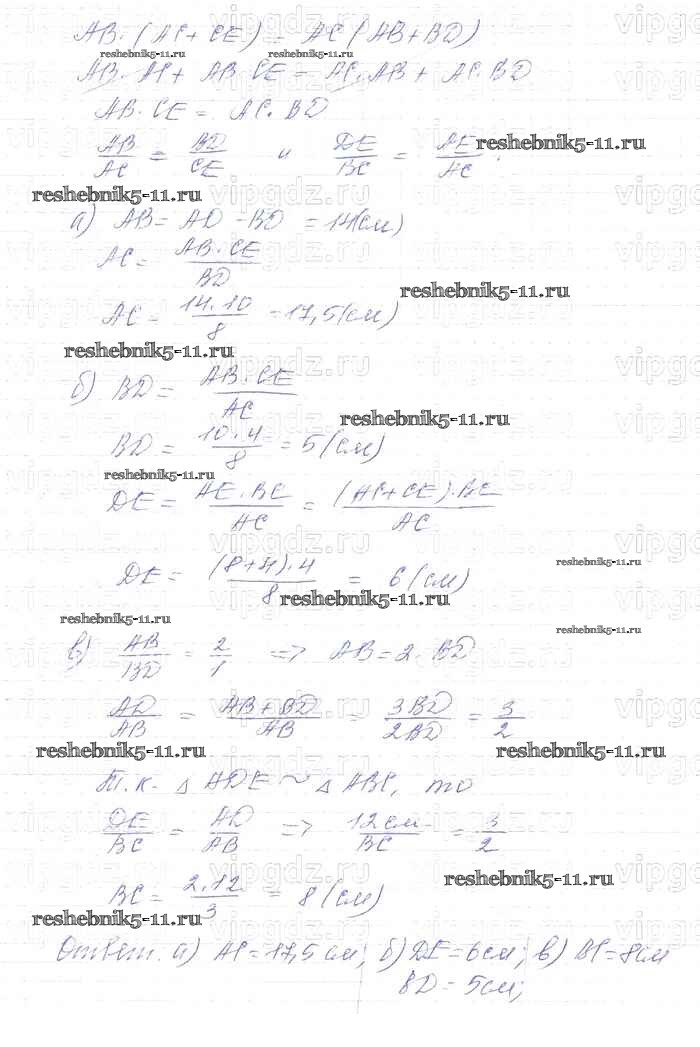 AB·(AC+CE) = AC(AB+BD)
reshebnik5-11.ru reshebnik5-11.ru
AB·AC + AB·CE = AC·AB + AC·BD
AB·CE = AC·BD
AB/AC = BD/CE и DE/BC = AE/AC.
reshebnik5-11.ru
reshebnik5-11.ru
а) AB = AD - BD = 14(см)
AC = AB·CE/BD
reshebnik5-11.ru
AC = 14·10/8 = 17,5(см)
reshebnik5-11.ru
б) BD = AB·CE/AC
reshebnik5-11.ru
BD = 10·4/8 = 5(см)
reshebnik5-11.ru
DE = AE·BC/AC = (AC+CE)·BC/AC
reshebnik5-11.ru
DE = (8+4)·4/8 = 6(см)
reshebnik5-11.ru
reshebnik5-11.ru
reshebnik5-11.ru
в) AB/BD = 2/1 => AB = 2·BD
AD/AB = AB+BD/AB = 3BD/2BD = 3/2
reshebnik5-11.ru reshebnik5-11.ru
Т.к. △ADE ~ △ABC, то
DE/BC = AD/AB => 12см/BC = 3/2
reshebnik5-11.ru
BC = 2·12/3 = 8(см)
reshebnik5-11.ru
Ответ: а) AC = 17,5 см; б) DE = 6см; в) BC = 8см
BD = 5см;
vipgdz.ru